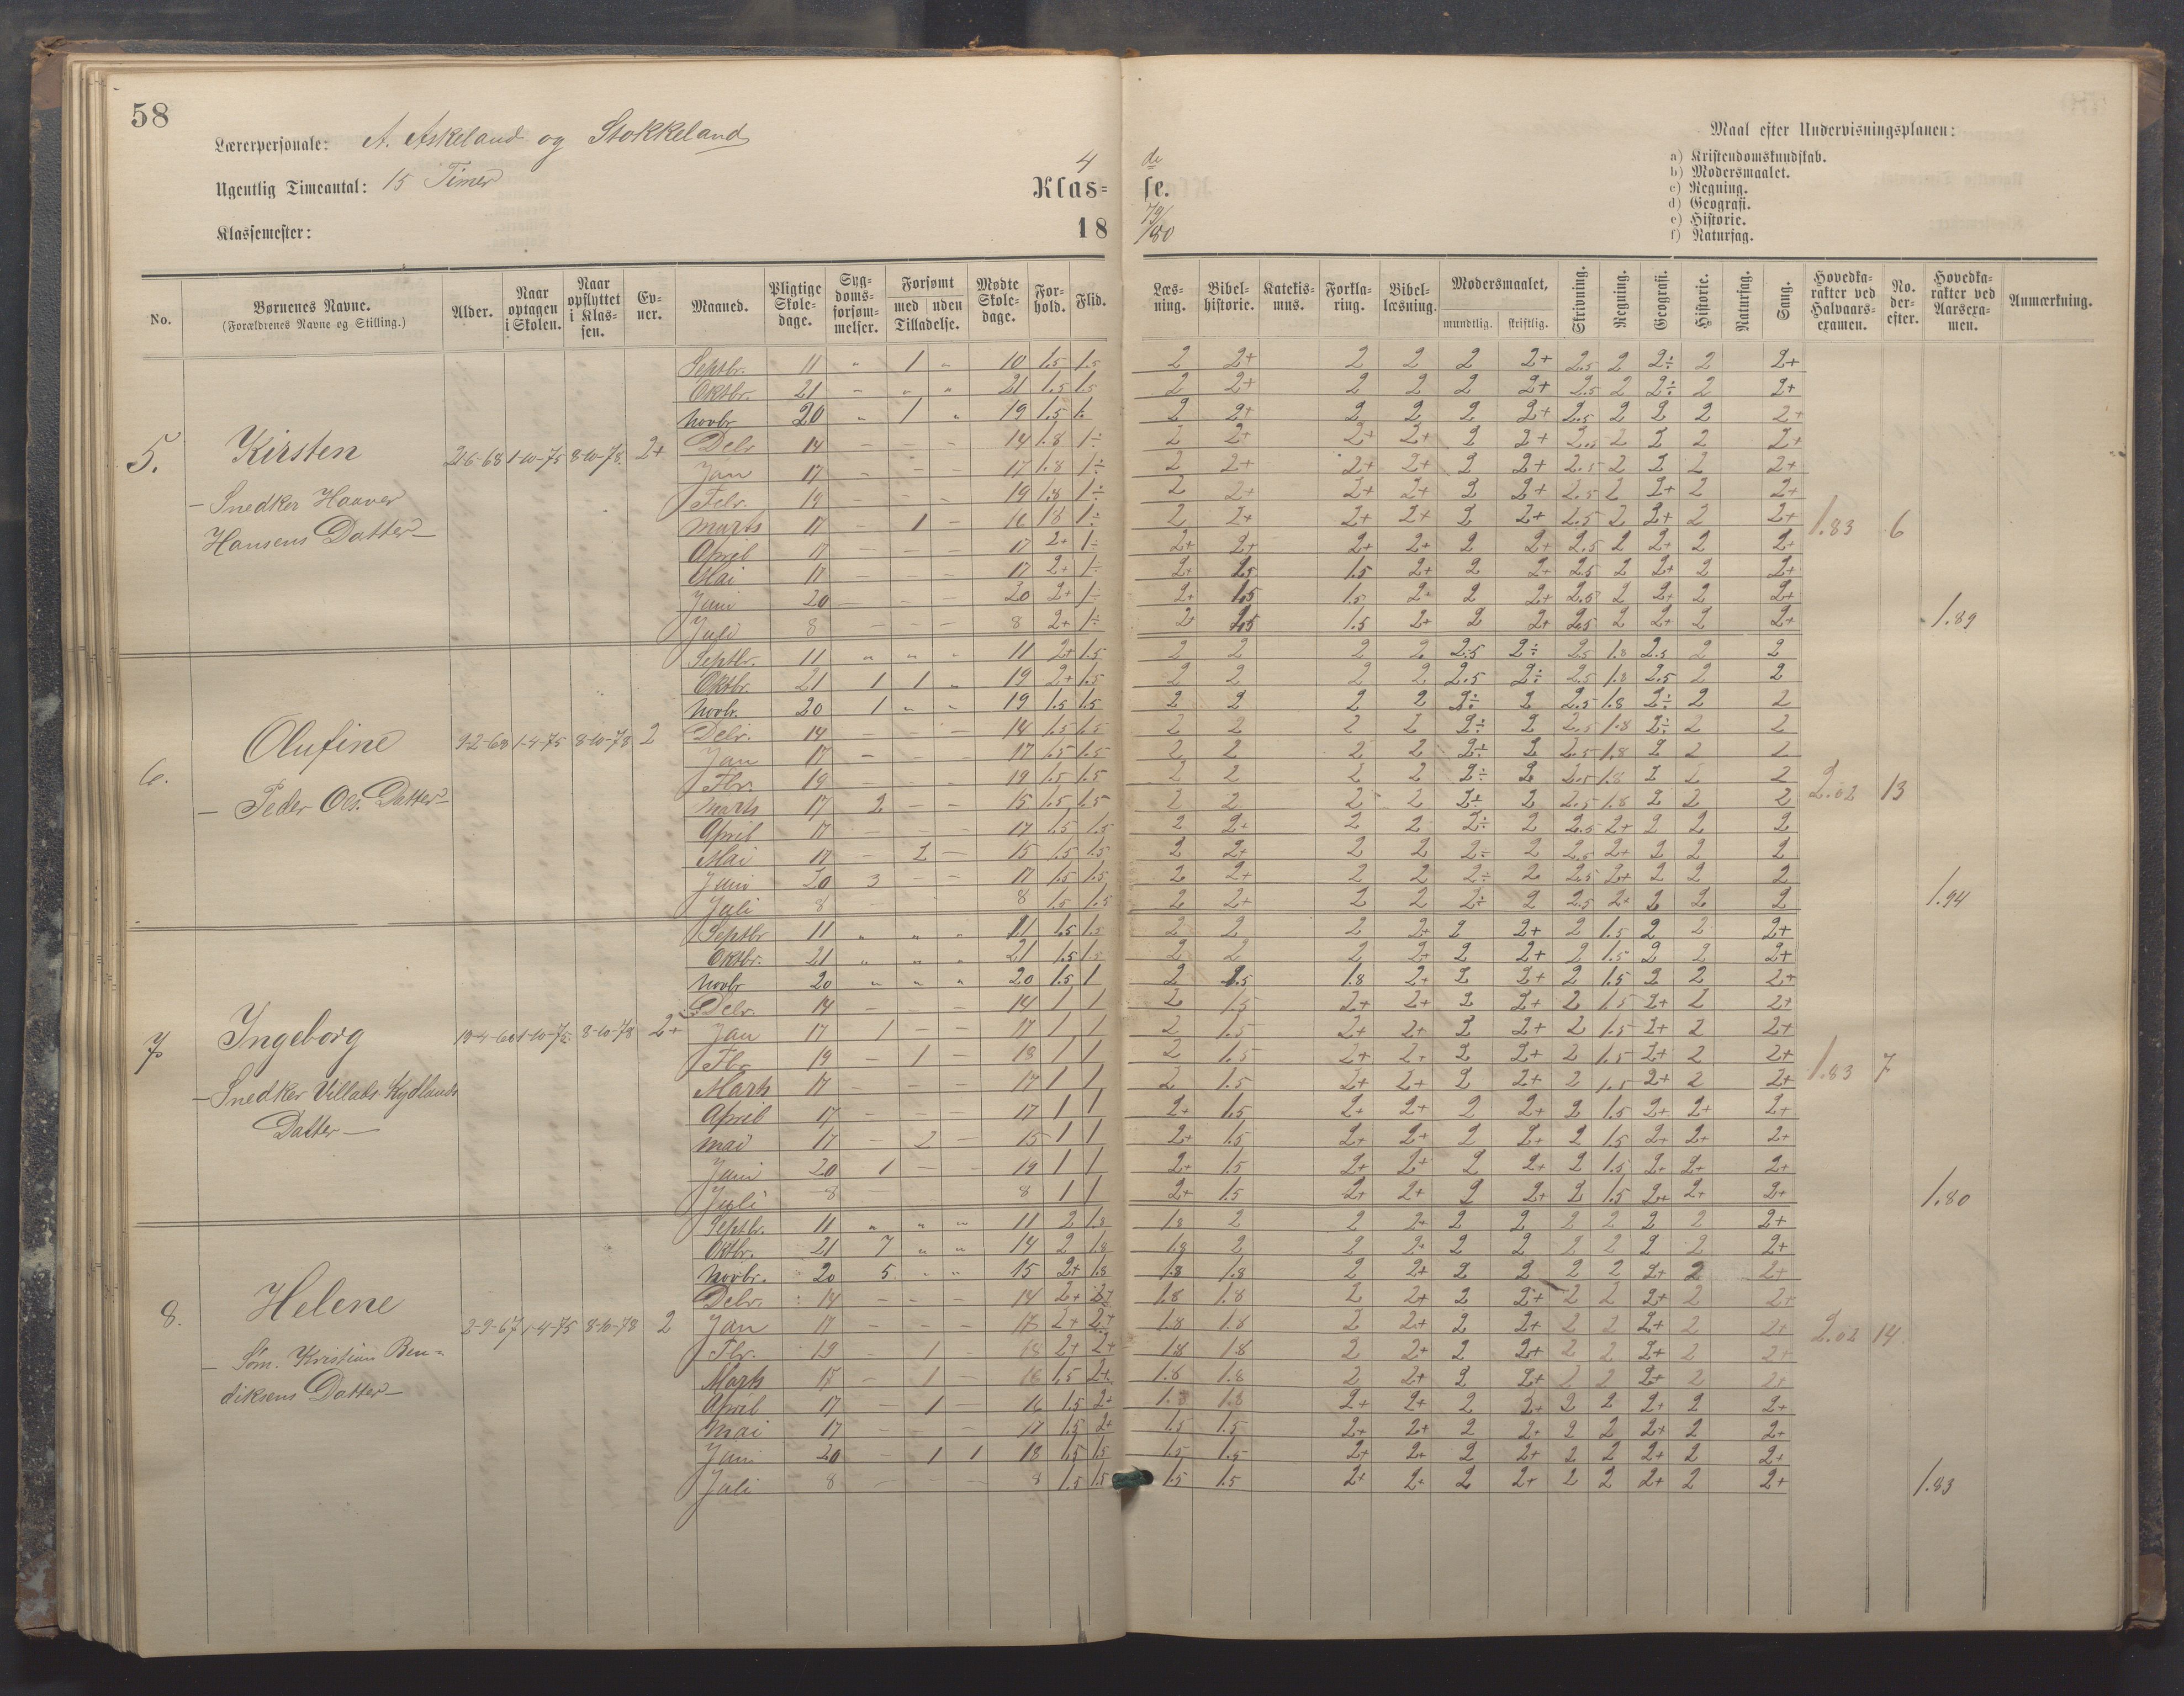 58
Lærerpersonale: A. Askeland og Stokkeland
Ugentlig Timeantal: 15 Timer
Klassemester:
4de
Klas= se.
18 79/80
Maal efter Undervisningsplanen:
a) Kristendomskundskab.
b) Modersmaalet.
c) Regning.
d) Geografi.
e) Historie.
f) Naturfag.
No. Børnenes Navne. (Forældrenes Navne og Stilling.) Alder. Naar optagen i Skolen. Naar opflyttet i Klassen. Evner. Maaned. Pligtige Skoledage. Sygdomsforsømmelser. Forsømt med uden Tilladelse. Mødte Skoledage. Forhold. Flid. Læsning. Bibelhistorie. Katekismus. Forklaring. Bibellæsning. Modersmaalet, mundtlig. skriftlig. Skrivning. Regning. Geografi. Historie. Naturfag. Sang. Hovedkarakter ved Halvaarsexamen. No. derefter. Hovedkarakter ved Aarsexamen. Anmærkning.
Septbr. 11 " 1 " 10 1.5 1.5 2 2+ 2 2 2 2+ 2.5 2 2÷ 2 2+
Oktbr. 21 " " " 21 1.5 1.5 2 2+ 2 2 2 2+ 2.5 2 2÷ 2 2+
Novbr 20 " 1 " 19 1.5 2 2+ 2 2 2 2+ 2.5 2 2 2 2+
5. Kirsten 21-6-68 1-10-75 8-10-78 2+ Debr 14 – – – 14 1.8 1÷ 2 2+ 2+ 2+ 2 2+ 2.5 2 2 2 2+
Jan 17 – – – 17 1.8 1÷ 2 2+ 2+ 2+ 2 2+ 2.5 2 2 2 2+
– Snedker Haaver Febr. 19 – – – 19 1.8 1÷ 2 2+ 2+ 2+ 2 2+ 2.5 2 2+ 2 2+
Hansens Datter – Marts 17 – 1 – 16 1.8 1÷ 2 2+ 2+ 2+ 2 2+ 2.5 2 2+ 2 2+ 1.83 6
April 17 – – – 17 2+ 1÷ 2+ 2+ 2+ 2+ 2 2+ 2.5 2 2+ 2 2+
Mai 17 – – – 17 2+ 1÷ 2+ 1.5 2+ 2 2+ 2.5 2 2+ 2 2+
Juni 20 – – – 20 2+ 1÷ 2+ 1.5 1.5 2+ 2 2+ 2.5 2 2+ 2 2+
Juli 8 – – – 8 2+ 1÷ 2+ 1.5 2+ 2 2+ 2.5 2 2+ 2 2+ 1.89
Septbr. 11 " " " 11 2+ 1.5 2 2 2 2 2.5 2÷ 2.5 1.8 2.5 2 2
Oktbr. 21 1 1 " 19 2+ 1.5 2 2 2 2 2.5 2÷ 2.5 1.8 2.5 2 2
Novbr. 20 1 " " 19 1.5 1.5 2 2 2 2 2÷ 2 2.5 1.8 2÷ 2 2
6. Olufine 1-4-75 8-10-78 2 Debr. 14 – – – 14 1.5 1.5 2 2 2 2 2÷ 2 2.5 1.8 2÷ 2 2
Jan 17 – – – 17 1.5 1.5 2 2 2 2 2÷ 2 2.5 1.8 2 2 2
– Peder Ols. Datter – Fbr. 19 – – – 19 1.5 1.5 2 2 2 2 2÷ 2 2.5 1.8 2 2 2
Marts 17 2 – – 15 1.5 1.5 2 2 2 2 2÷ 2 2.5 1.8 2 2 2 2.02 13
April 17 – – – 17 1.5 1.5 2 2+ 2 2 2÷ 2 2.5 2+ 2 2 2
Mai 17 – 2 – 15 1.5 1.5 2 2+ 2 2 2÷ 2 2.5 2+ 2 2 2
Juni 20 3 – – 17 1.5 1.5 2 2+ 2 2 2÷ 2 2.5 2+ 2 2 2
Juli 8 – 8 1.5 1.5 2 2+ 2 2 2÷ 2 2.5 2+ 2 2 2 1.94
Septbr 11 " " " 11 1.5 1.5 2 2 2 2+ 2 2+ 2 1.5 2 2 2+
Oktbr. 21 " " " 21 1.5 1.5 2 2 2 2+ 2 2+ 2 1.5 2 2 2+
Novbr 20 " " " 20 1.5 1 2 1.5 1.8 2+ 2 2+ 2 1.5 2 2 2+
Debr. 14 – – – 14 1 1 2 1.5 2+ 2+ 2 2+ 2 1.5 2+ 2 2+
7. Ingeborg 1-10-75 8-10-78 2+ Jan 17 1 – – 17 1 1 2 1.5 2+ 2+ 2 2+ 2 1.5 2+ 2 2+
Fbr 19 – 1 – 18 1 1 2 1.5 2+ 2+ 2 2+ 2 1.5 2+ 2 2+ 1.83 7
– Snedker Villads Kydlands Marts 17 – – – 17 1 1 2 1.5 2+ 2+ 2 2+ 2 1.5 2+ 2 2+
Datter – April 17 – – – 17 1 1 2+ 1.5 2+ 2+ 2 2+ 2 1.5 2+ 2+ 2+
Mai 17 – 2 – 15 1 1 2+ 1.5 2+ 2+ 2 2+ 2 1.5 2+ 2+ 2+
Juni 20 1 – – 19 1 1 2+ 1.5 2+ 2+ 2 2+ 2 1.5 2+ 2+ 2+
Juli 8 8 1 1 2+ 1.5 2+ 2+ 2 2+ 2 1.5 2+ 2+ 2+ 1.80
Septbr. 11 " " " 11 2 1.8 1.8 2 2 2+ 2 2 2 2 2 2 2+
Oktbr. 21 7 " " 14 2 1.8 1.8 2 2 2+ 2 2 2 2 2 2 2+
Novbr. 20 5 " " 15 2+ 1.8 1.8 1.8 2 2+ 2 2 2 2 2+ 2 2+
Debr. 14 – – – 14 2+ 2+ 1.8 1.8 2 2+ 2 2+ 2 2 2+ 2 2+
8. Helene 2-9-67 1-4-75 8-10-78 2 Jan 17 – – – 17 2+ 2+ 1.8 1.8 2 2+ 2 2+ 2 2 2+ 2 2+ 2.02 14
– Søm. Kristian Ben= Fbr. 19 – 1 – 18 2+ 2+ 1.8 1.8 2 2+ 2 2+ 2 2 2+ 2 2+
diksens Datter – Marts 17 – 1 – 16 1.5 2+ 1.8 1.8 2 2+ 2 2+ 2 2 2+ 2 2+
April 17 – 1 – 16 1.5 2+ 1.8 1.8 2+ 2+ 2 2+ 2 2 2+ 2 2+
Mai 17 – – – 17 1.5 2+ 1.5 1.5 2+ 2+ 2 2+ 2 2 2+ 2 2+
Juni 20 – 1 1 18 1.5 1.5 1.5 1.5 2+ 2+ 2 2+ 2 2 2+ 2 2+
Juli 8 – – – 8 1.5 1.5 1.5 1.5 2+ 2+ 2 2+ 2 2 2+ 2 2+ 1.83